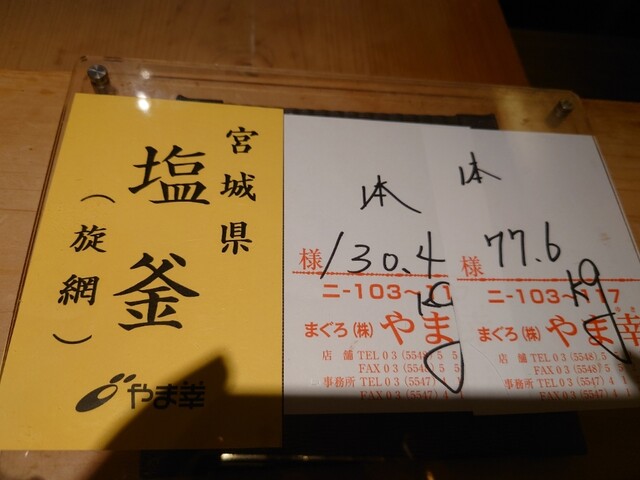 宮城県
塩釜
(旋網)
やま幸
本
130.4
様
ニ-103~
まぐろ(株)やま
店舗 TEL 03 (5548) 5 5
FAX 03 (5548) 5 5
事務所 TEL 03 (5547) 4 1
FAX 03 (5547) 4
本
77.6
様
kg
ニ-103~117
まぐろ(株)やま幸
店舗 TEL 03 (5548) 5
FAX 03 (5548) 5
事務所 TEL 03 (5547) 4
FAX 03 (5547) 4